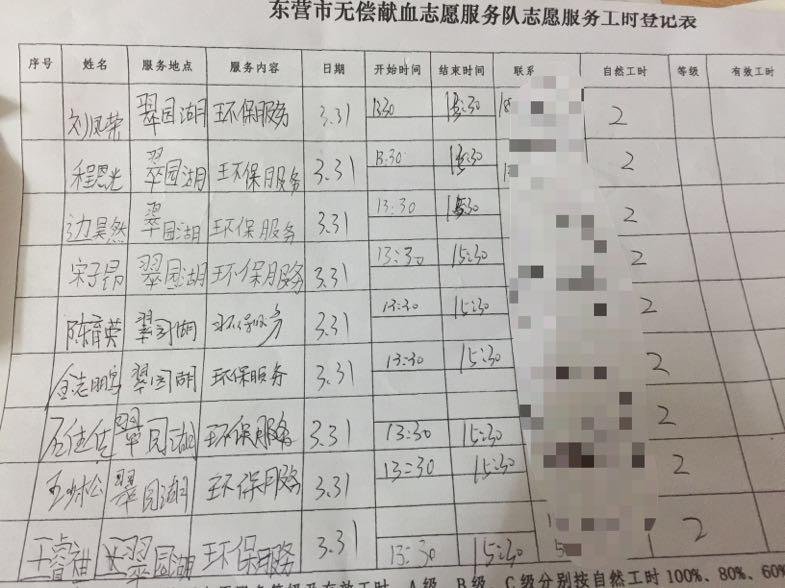 东营市无偿献血志愿服务队志愿服务工时登记表
序号 姓名 服务地点 服务内容 日期 开始时间 结束时间 联系 自然工时 等级 有效工时
刘凤荣 翠园湖 环保服务 3.31 13:30 15:30 2
程恩光 翠园湖 环保服务 3.31 13:30 15:30 2
边昊然 翠园湖 环保服务 3.31 13:30 15:30 2
宋子昂 翠园湖 环保服务 3.31 13:30 15:30 2
陈育英 翠园湖 环保服务 3.31 13:30 15:30 2
金志鹏 翠园湖 环保服务 3.31 13:30 15:30 2
翠园湖 环保服务 3.31 13:30 15:30 2
翠园湖 环保服务 3.31 13:30 15:30 2
翠园湖 环保服务 3.31 13:30 15:30 2
有效工时 A级、B级、C级分别按自然工时100%、80%、60%